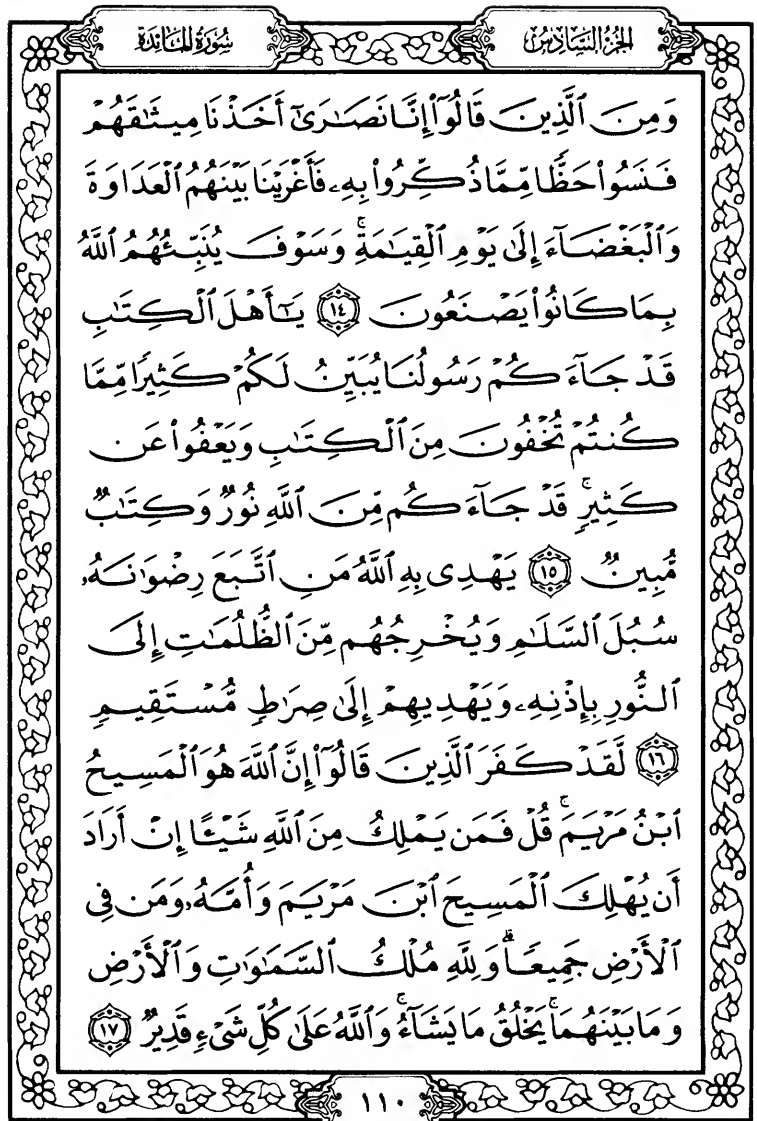 الجزء السادس
سورة المائدة
وَمِنَ ٱلَّذِينَ قَالُوٓا۟ إِنَّا نَصَـٰرَىٰٓ أَخَذْنَا مِيثَـٰقَهُمْ
فَنَسُوا۟ حَظًّا مِّمَّا ذُكِّرُوا۟ بِهِۦ فَأَغْرَيْنَا بَيْنَهُمُ ٱلْعَدَاوَةَ
وَٱلْبَغْضَآءَ إِلَىٰ يَوْمِ ٱلْقِيَـٰمَةِ ۚ وَسَوْفَ يُنَبِّئُهُمُ ٱللَّهُ
بِمَا كَانُوا۟ يَصْنَعُونَ ١٤ يَـٰٓأَهْلَ ٱلْكِتَـٰبِ
قَدْ جَآءَكُمْ رَسُولُنَا يُبَيِّنُ لَكُمْ كَثِيرًا مِّمَّا
كُنتُمْ تُخْفُونَ مِنَ ٱلْكِتَـٰبِ وَيَعْفُوا۟ عَن
كَثِيرٍ ۚ قَدْ جَآءَكُم مِّنَ ٱللَّهِ نُورٌ وَكِتَـٰبٌ
مُّبِينٌ ١٥ يَهْدِى بِهِ ٱللَّهُ مَنِ ٱتَّبَعَ رِضْوَٰنَهُۥ
سُبُلَ ٱلسَّلَـٰمِ وَيُخْرِجُهُم مِّنَ ٱلظُّلُمَـٰتِ إِلَى
ٱلنُّورِ بِإِذْنِهِۦ وَيَهْدِيهِمْ إِلَىٰ صِرَٰطٍ مُّسْتَقِيمٍ
١٦ لَّقَدْ كَفَرَ ٱلَّذِينَ قَالُوٓا۟ إِنَّ ٱللَّهَ هُوَ ٱلْمَسِيحُ
ٱبْنُ مَرْيَمَ ۚ قُلْ فَمَن يَمْلِكُ مِنَ ٱللَّهِ شَيْـًٔا إِنْ أَرَادَ
أَن يُهْلِكَ ٱلْمَسِيحَ ٱبْنَ مَرْيَمَ وَأُمَّهُۥ وَمَن فِى
ٱلْأَرْضِ جَمِيعًا ۗ وَلِلَّهِ مُلْكُ ٱلسَّمَـٰوَٰتِ وَٱلْأَرْضِ
وَمَا بَيْنَهُمَا ۚ يَخْلُقُ مَا يَشَآءُ ۚ وَٱللَّهُ عَلَىٰ كُلِّ شَىْءٍ قَدِيرٌ ١٧
١١٠